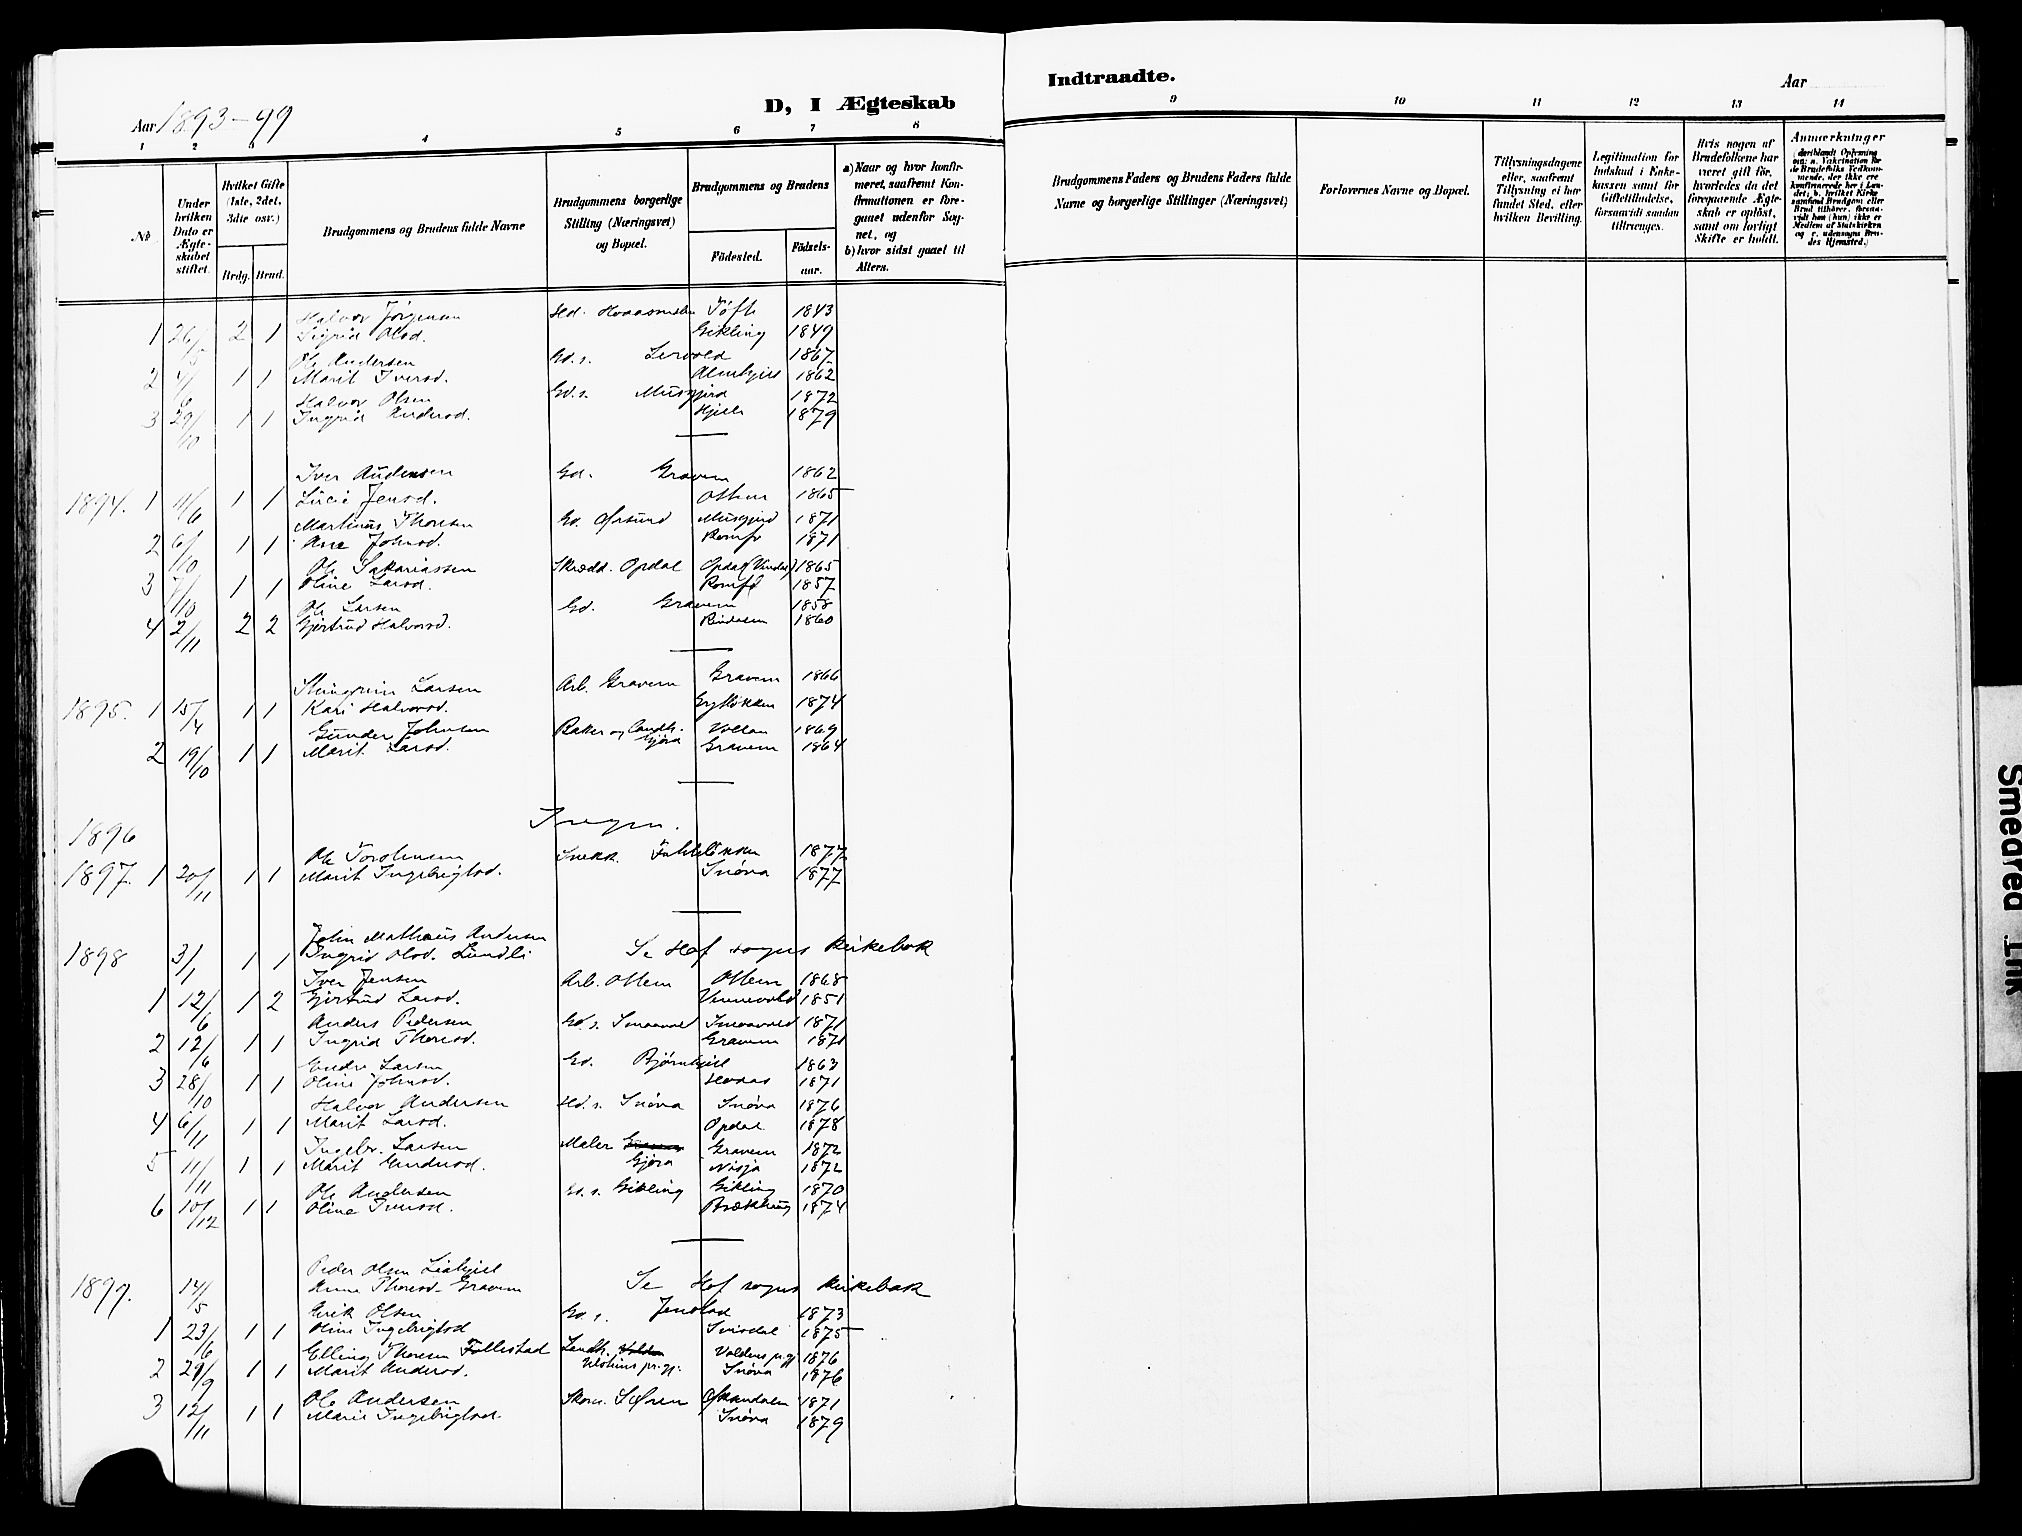 D, I Ægteskab
Indtraadte.
Aar 1893-99
Aar
1 2 3 4 5 6 7 8
9 10 11 12 13 14
No.
Under hvilken Dato er Ægteskabet stiftet.
Hvilket Gifte (1ste, 2det, 3die osv.)
Brdg. Brud.
Brudgommens og Brudens fulde Navne
Brudgommens borgerlige Stilling (Næringsvei) og Bopæl.
Brudgommens og Brudens
Fødested.
Fødselsaar.
a) Naar og hvor konfirmeret, saafremt Konfirmationen er foregaaet udenfor Sognet, og
b) hvor sidst gaaet til Alters.
Brudgommens Faders og Brudens Faders fulde Navne og borgerlige Stillinger (Næringsvei)
Forlovernes Navne og Bopæl.
Tillysningsdagene eller, saafremt Tillysning ei har fundet Sted, efter hvilken Bevilling.
Legitimation for Indskud i Enkekassen samt for Giftetilladelse, forsaavidt saadan tiltrænges.
Hvis nogen af Brudefolkene har været gift før, hvorledes da det foregaaende Ægteskab er opløst, samt om lovligt Skifte er holdt.
Anmærkninger
Halvor Jørgensen Hd. Tøfte 1843
1 26/5 2 1 Sigrid Olsd. Gikling 1849
Ole Andersen Gd. s. Lervold 1867
2 4/6 1 1 Marit Iversd. Almskjell 1862
Halvor Olsen Gd. s. Musgjerd 1872
3 29/10 1 1 Ingrid Andersd. Hjelle 1879
Iver Andersen Gd. Gravem 1862
1894. 1 11/6 1 1 Lucie Jensd. Ottem 1865
Martinus Thoresen Gd. Ørsund Musgjerd 1871
2 6/10 1 1 Ane Johnsd. Romfo 1871
Ole Sakariassen Skrædd. Opdal Opdal (Vindal) 1865
3 7/10 1 1 Oline Larsd. Romfo 1857
Ole Larsen Gd. Gravem 1858
4 2/11 2 2 Gjertrud Halvorsd. Rindalen 1860
Steingrim Larsen Arb. Gravem Gravem 1866
1895. 1 15/4 1 1 Kari Halvorsd. 1874
Gunder Johnsen Baker og Landh. Gjøra Vollan 1869
2 19/10 1 1 Marit Larsd. Gravem 1864
1896 Ingen.
Ole Torstensen Snekk. Faleløkken 1877
1897. 1 20/11 1 1 Marit Ingebrigtsd. Snøva 1877
John Mathæus Andersen
1898 3/1 1 1 Ingrid Olsd. Lundli Se Hof sogns kirkebok
Iver Jensen Arb. Ottem Ottem 1868
1 12/6 1 2 Gjertrud Larsd. Vinnevold 1851
Anders Pedersen Gd. s. Snøavold Snøavold 1871
2 12/6 1 1 Ingrid Thoresd. Gravem 1871
Endre Larsen Gd. Bjørnkjell 1863
3 28/10 1 1 Oline Johnsd. Hovas 1871
Halvor Andersen Hd. s. Snøva Snøva 1876
4 6/11 1 1 Marit Larsd. Opdal 1878
Ingebr. Larsen Maler Gjøra Gravem 1872
5 11/11 1 1 Marit Gundersd. Nisja 1872
Ole Andersen Gd. s. Gikling Gikling 1870
6 10/12 1 1 Oline Iversd. Brækhaug 1874
Peder Olsen Liahjell
1899. 14/5 Anne Thoresd. Gravem Se Hof sogns kirkebok
Erik Olsen Gd. s. Jenstad 1873
1 23/6 1 1 Oline Ingebrigtsd. Svisdal 1875
Elling Thoresen Follestad Landh. Voldens pr.gj. Voldens pr.gj. 1876
2 29/9 1 1 Marit Andersd. Snøva 1876
Ole Andersen Skom. Søren Øksendalen 1871
3 12/11 1 1 Marie Ingebrigtsd. Snøva 1879
Smeared Ink